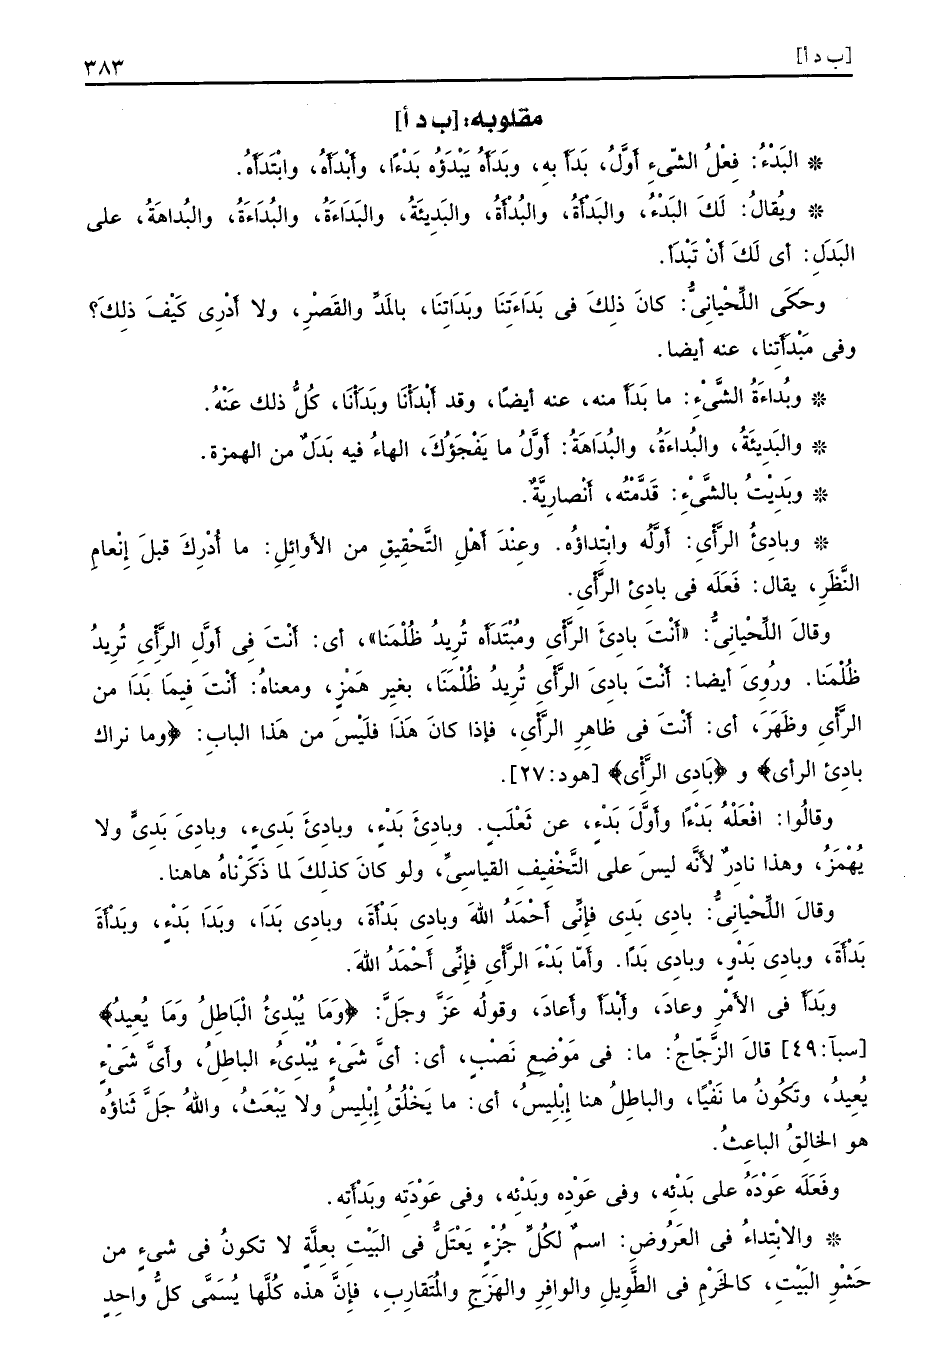 [ب د أ] ٣٨٣
مقلوبه: [ب د أ]
* البَدْءُ: فِعْلُ الشّىءِ أوَّلُ، بَدَأ بهِ، وبَدَأهُ يَبْدَؤه بَدْءًا، وأبْدَأهُ، وابْتَدَأهُ.
* ويُقالُ: لَكَ البَدْءُ، والبَدْأةُ، والبُدْأةُ، والبَدِيئةُ، والبَدَاءَةُ، والبُدَاءَةُ، والبُداهَةُ، على
البَدَلِ: أى لَكَ أنْ تَبْدَأ.
وحَكَى اللِّحْيانِىُّ: كانَ ذلِكَ فى بَدَاءَتِنَا وبَدَاتِنَا، بالمَدِّ والقَصْرِ، ولا أدْرِى كَيْفَ ذلِكَ؟
وفى مَبْدَأتنا، عنه أيضا.
* وبُداءَةُ الشَّىْءِ: ما بَدَأ منه، عنه أيضًا، وقد أبْدَأنَا وبَدَأنَا، كُلُّ ذلك عَنْهُ.
* والبَدِيئَةُ، والبُداءَةُ، والبُدَاهَةُ: أوَّلُ ما يَفْجَؤُكَ، الهاءُ فيه بَدَلٌ من الهمزة.
* وبَدَيْتُ بالشَّىْءِ: قَدَّمْتُه، أنْصاريَّةٌ.
* وبادِئُ الرَّأْىِ: أوَّلُه وابْتِداؤُه. وعِنْدَ أهْلِ التَّحْقِيقِ من الأوائلِ: ما أُدْرِكَ قبلَ إنْعامِ
النَّظَرِ، يقال: فَعَلَه فى بادِئ الرَّأْىِ.
وقالَ اللِّحْيانِىُّ: «أنْتَ بادِئَ الرَّأْىِ ومُبْتَدَأه تُرِيدُ ظُلْمَنا»، أى: أنْتَ فى أوَّلِ الرَّأْىِ تُرِيدُ
ظُلْمَنا. ورُوِىَ أيضا: أنْتَ بادِىَ الرَّأْىِ تُرِيدُ ظُلْمَنَا، بغير هَمْزٍ، ومعناهُ: أنْتَ فيمَا بَدَا من
الرَّأْىِ وظَهَرَ، أى: أنْتَ فى ظاهِرِ الرَّأْىِ، فإذا كانَ هَذَا فلَيْسَ من هَذا البابِ: ﴿وما نراك
بادِئ الرأى﴾ و ﴿بَادِى الرَّأْىِ﴾ [هود: ٢٧].
وقالُوا: افْعَلْهُ بَدْءًا وأوَّلَ بَدْءٍ، عن ثَعْلَبٍ. وبادِئَ بَدْءٍ، وبادِئَ بَدِىءٍ، وبادِىَ بَدِىٍّ ولا
يُهْمَزُ، وهذا نادِرٌ لأنَّه ليسَ على التَّخْفِيفِ القياسىِّ، ولو كانَ كذلِكَ لما ذَكَرْناهُ هاهنا.
وقالَ اللِّحْيانِىُّ: بادِى بَدِى فإنِّى أحْمَدُ اللهَ وبادِى بَدْأَةَ، وبادِى بَدَا، وبَدَا بَدْءٍ، وبَدْأةَ
بَدْأةَ، وبادِى بَدْوٍ، وبادِى بَدًا. وأمّا بَدْءَ الرَّأْىِ فإنِّى أحْمَدُ اللهَ.
وبَدَأ فى الأمْرِ وعادَ، وأبْدَأ وأعادَ، وقولُه عَزَّ وجَلَّ: ﴿وَمَا يُبْدِئُ الْبَاطِلُ وَمَا يُعِيدُ﴾
[سبآ: ٤٩] قالَ الزَّجّاجُ: ما: فى مَوْضِعِ نَصْبٍ، أى: أىَّ شَىْءٍ يُبْدِىءُ الباطِلُ، وأىَّ شَىْءٍ
يُعِيدُ، وتَكُونُ ما نَفْيًا، والباطِلُ هنا إبْلِيسُ، أى: ما يَخْلُقُ إبْلِيسُ ولا يَبْعَثُ، واللهُ جَلَّ ثَناؤُه
هو الخالِقُ الباعِثُ.
وفَعَلَه عَوْدَهُ على بَدْئِه، وفى عَوْدِه وبَدْئِه، وفى عَوْدَتِه وبَدْأَتِه.
* والابْتِداءُ فى العَرُوضِ: اسمٌ لكُلِّ جُزْءٍ يَعْتَلُّ فى البَيْتِ بعِلَّةٍ لا تكونُ فى شىءٍ من
حَشْوِ البَيْتِ، كالخَرْمِ فى الطَّوِيلِ والوافِرِ والهَزَجِ والمُتَقارِبِ، فإنَّ هذه كُلَّها يُسَمَّى كلُّ واحِدٍ